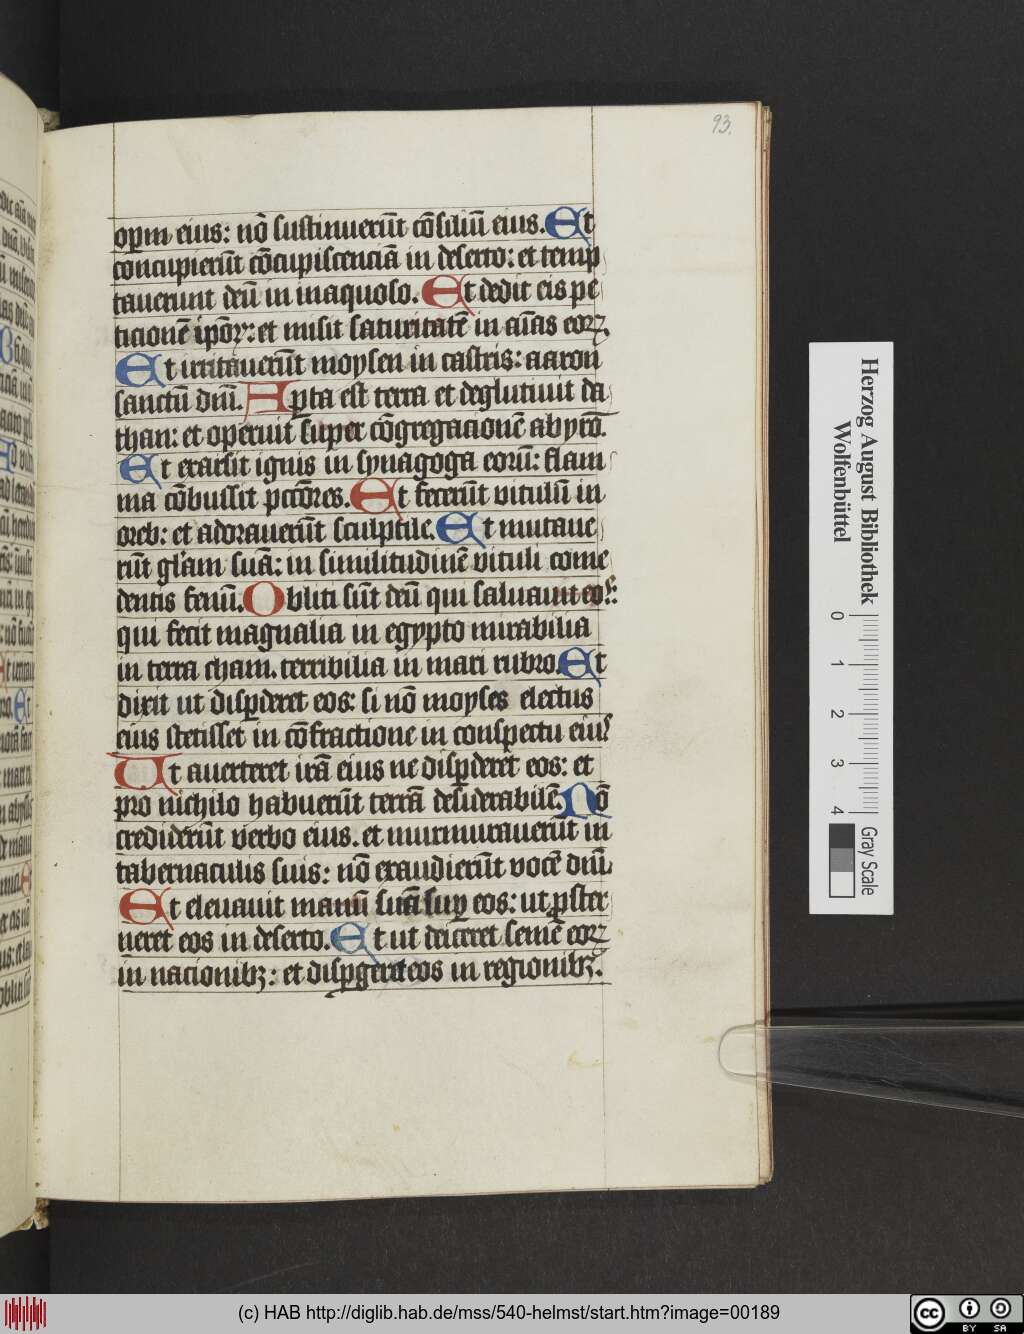 93.
op̄m eius: nō sustinuerūt cōsiliū eius. Et
concupierūt cōcupiscenciā in deserto: et temp
tauerunt deū in inaquoso. Et dedit eis pe
ticionē ipōꝝ: et misit saturitatē in aīas eoꝝ.
Et irritauerūt moysen in castris: aaron
sanctū dn̄i. Aperta est terra et deglutiuit da
than: et operuit super cōgregacionē abyrō.
Et exarsit ignis in synagoga eorū: flam
ma cōbussit pctōres. Et fecerūt vitulū in
oreb: et adorauerūt sculptile. Et mutaue
rūt gl̄am suā: in similitudinē vituli come
dentis fenū. Obliti sūt deū qui saluauit eos:
qui fecit magnalia in egypto mirabilia
in terra cham. terribilia in mari rubro. Et
dixit ut disꝑderet eos: si nō moyses electus
eius stetisset in cōfractione in conspectu eius
Ut auerteret irā eius ne disꝑderet eos: et
pro nichilo habuerūt terrā desiderabilē. Nō
crediderūt verbo eius. et murmurauerūt in
tabernaculis suis: nō exaudierūt vocē dn̄i.
Et eleuauit manū suā suꝑ eos: ut ꝓster
neret eos in deserto. Et ut deiceret semē eoꝝ
in nacionibꝫ: et disꝑgeret eos in regionibꝫ.
Herzog August Bibliothek
Wolfenbüttel
0 1 2 3 4
Gray Scale
(c) HAB http://diglib.hab.de/mss/540-helmst/start.htm?image=00189
cc BY SA